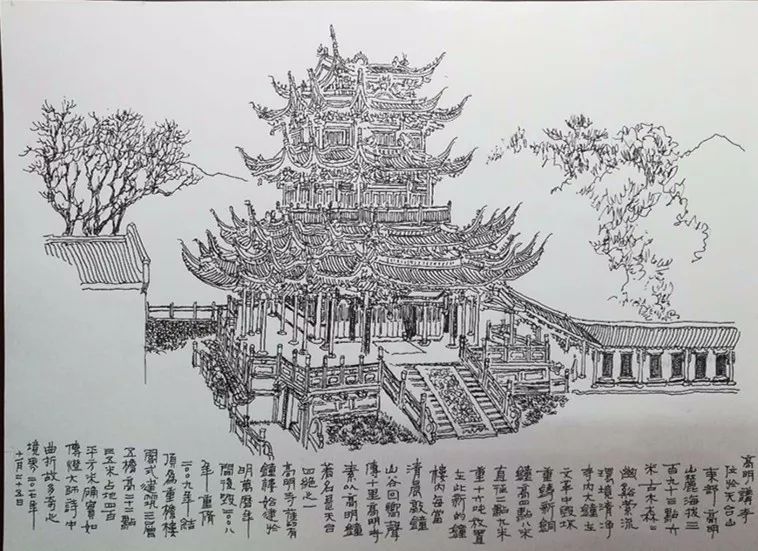 高明講寺
位於天台山
東部高明
山麓海拔三
百九十三點六
米古木森二
幽谿縈流
環境清净
寺内大鐘在
文革中毀壞
重鑄新銅
鐘高四點八米
直徑二點九米
重十六吨放置
在此新的鐘
樓内每當
清晨敲鐘
山谷回響聲
傳十里高明寺
素以高明鐘
著名是天台
四絕之一
高明寺舊有
鐘樓始建於
明萬曆年
間後毀二〇〇八
年重
二〇〇九年結
頂爲重檐樓
閣式建築三層
五檐高三十三點
三五米占地四百
平方米確實如
傳燈大師詩中
曲折故多奇
境界二〇一七年
十一月二十五日